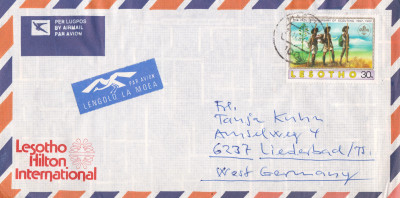 PER LUGPOS
BY AIRMAIL
PAR AVION
LESOTHO 30s
PAR AVION
LENGOLO LA MOEA
Lesotho
Hilton
International
Fr.
Tanja Kuhn
Amselweg 4
6237 Liederbad/Ts.
West Germany